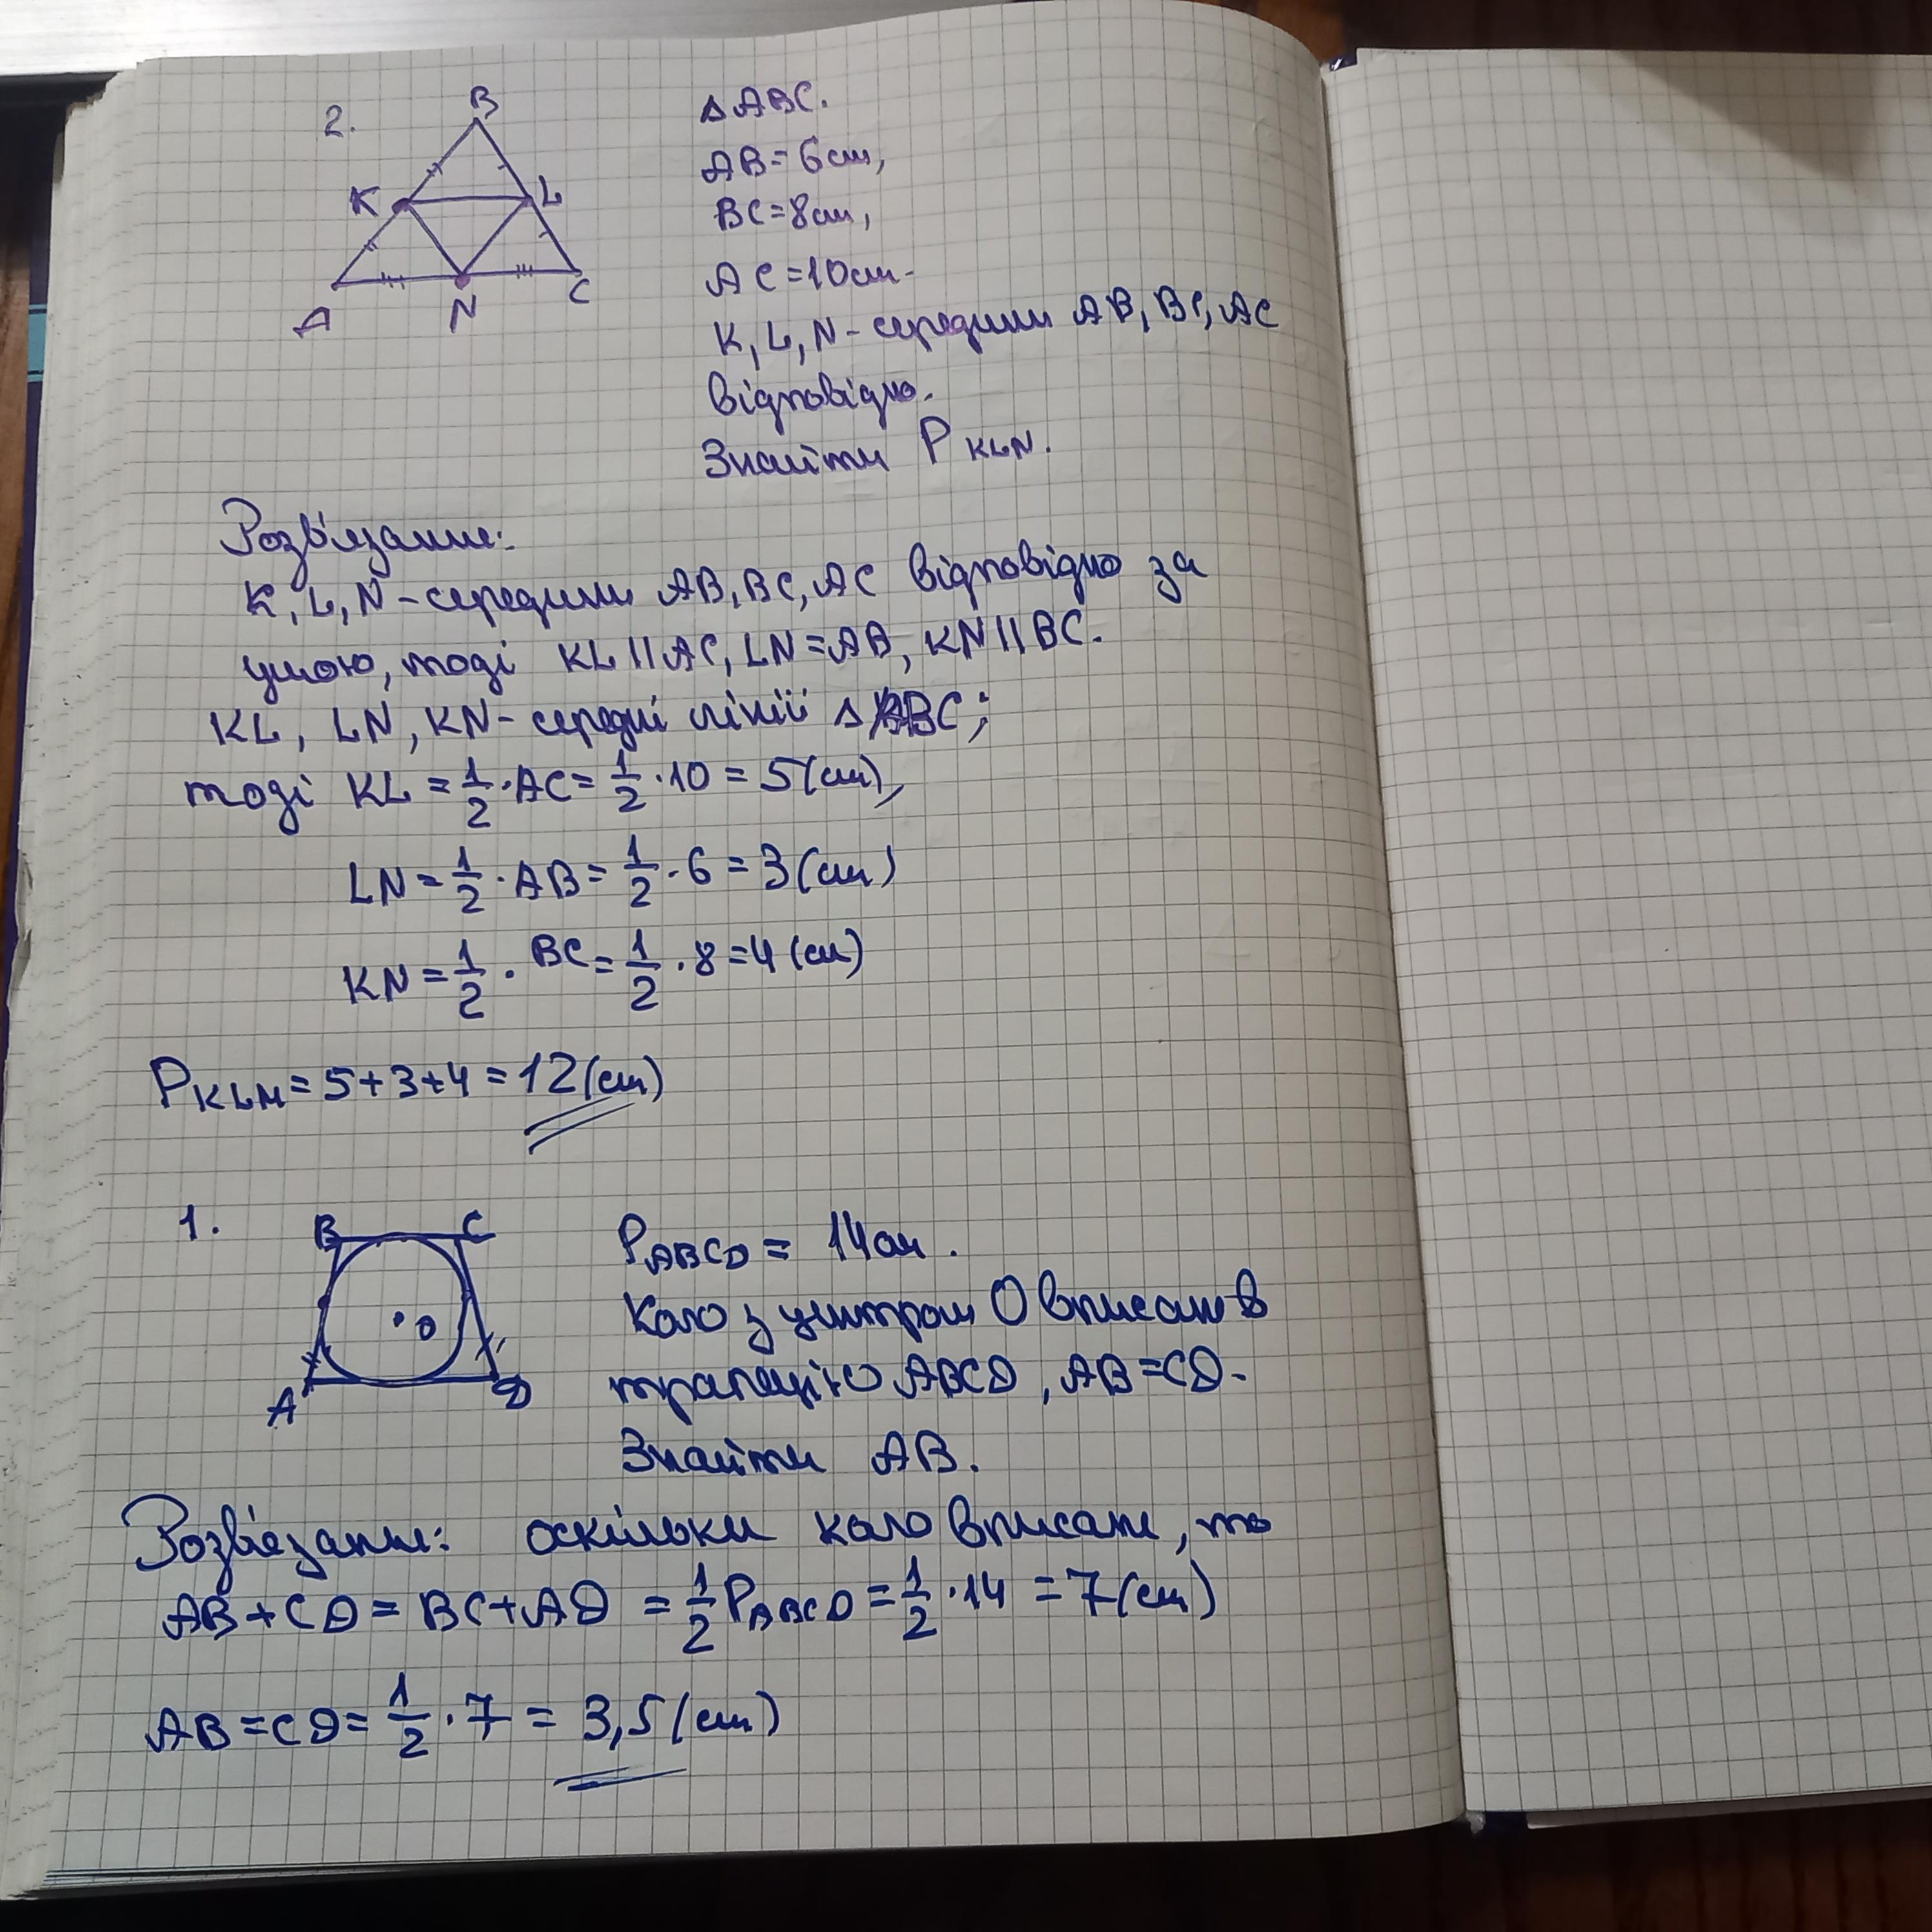 2.
B
K
L
A
N
C
△ABC.
AB=6см,
BC=8см,
AC=10см.
K,L,N-середини AB,BC,AC
відповідно.
Знайти P KLN.
Розв'язання:
K,L,N-середини AB,BC,AC відповідно за
умою, тоді KL||AC, LN=AB, KN||BC.
KL, LN, KN- середні лінії △ABC;
тоді KL = 1/2·AC= 1/2·10 = 5(см),
LN= 1/2·AB= 1/2·6 = 3(см)
KN= 1/2·BC= 1/2·8=4(см)
P KLM = 5+3+4 = 12(см)
1.
B
C
O
A
D
P ABCD = 14см.
Коло з центром O вписане в
трапецію ABCD, AB=CD.
Знайти AB.
Розв'язання: оскільки коло вписане, то
AB+CD = BC+AD = 1/2 P ABCD = 1/2·14 = 7(см)
AB=CD= 1/2·7 = 3,5(см)